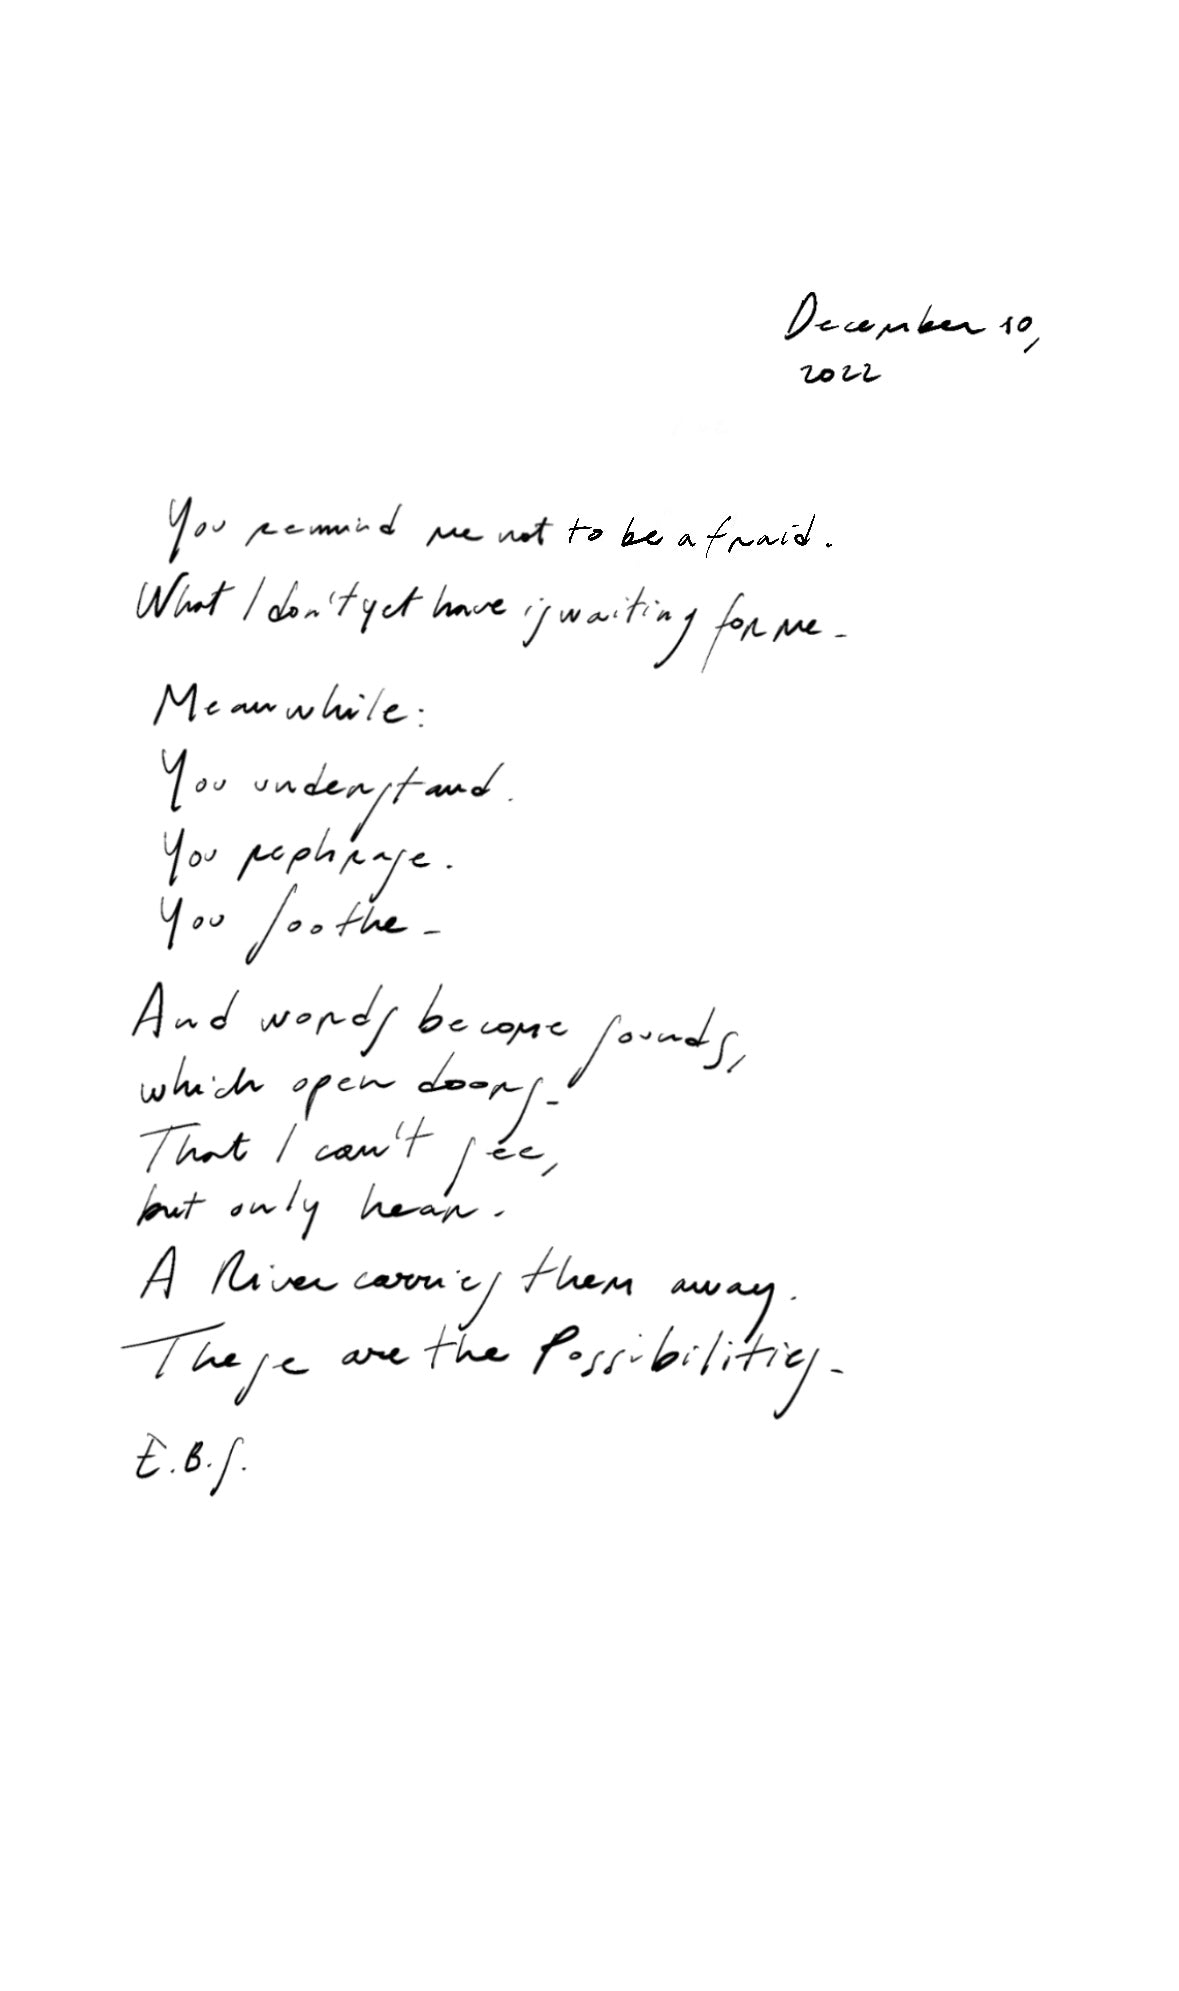 December 10,
2022
You remind me not to be afraid.
What I don't yet have is waiting for me.
Meanwhile:
You understand.
You rephrase.
You soothe.
And words become sounds,
which open doors.
That I can't see,
but only hear.
A River carries them away.
These are the Possibilities.
E.B.S.